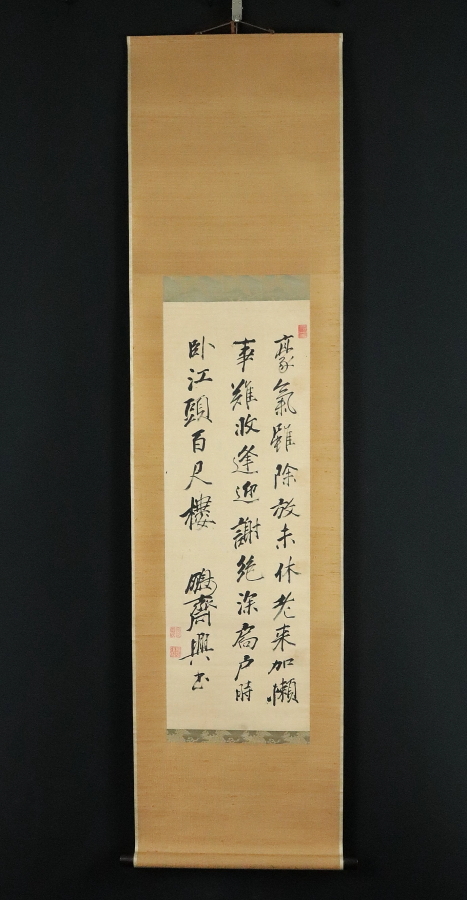 豪氣雖除放未休老来加懶
事難收逢迎謝絶深扃戸時
卧江頭百尺樓
鵬齋興書